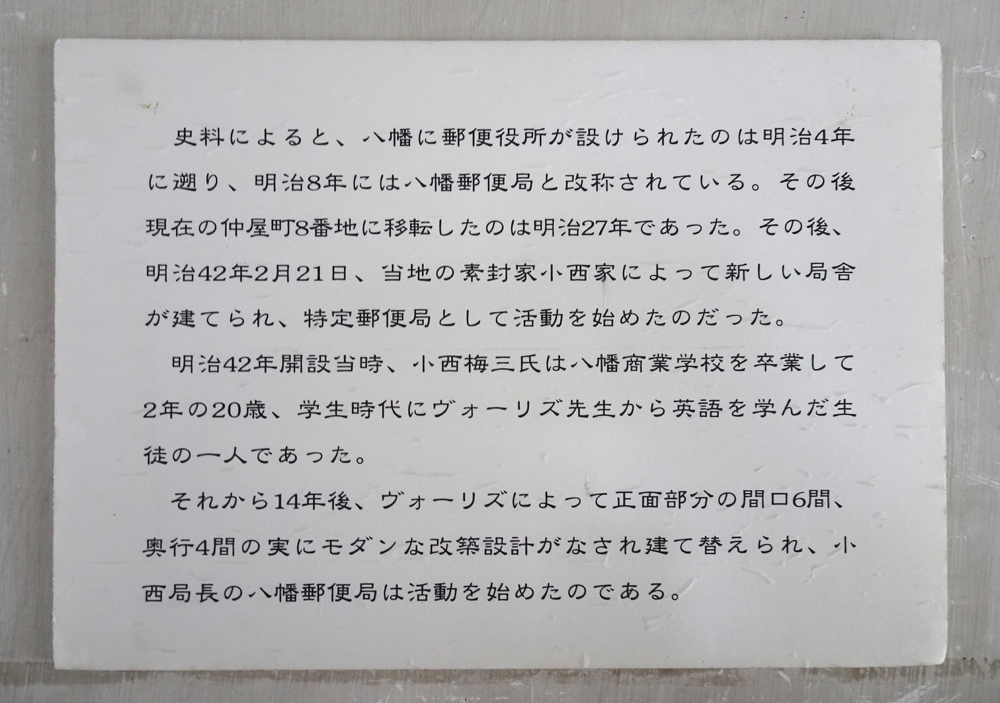 史料によると、八幡に郵便役所が設けられたのは明治4年
に遡り、明治8年には八幡郵便局と改称されている。その後
現在の仲屋町8番地に移転したのは明治27年であった。その後、
明治42年2月21日、当地の素封家小西家によって新しい局舎
が建てられ、特定郵便局として活動を始めたのだった。
明治42年開設当時、小西梅三氏は八幡商業学校を卒業して
2年の20歳、学生時代にヴォーリズ先生から英語を学んだ生
徒の一人であった。
それから14年後、ヴォーリズによって正面部分の間口6間、
奥行4間の実にモダンな改築設計がなされ建て替えられ、小
西局長の八幡郵便局は活動を始めたのである。